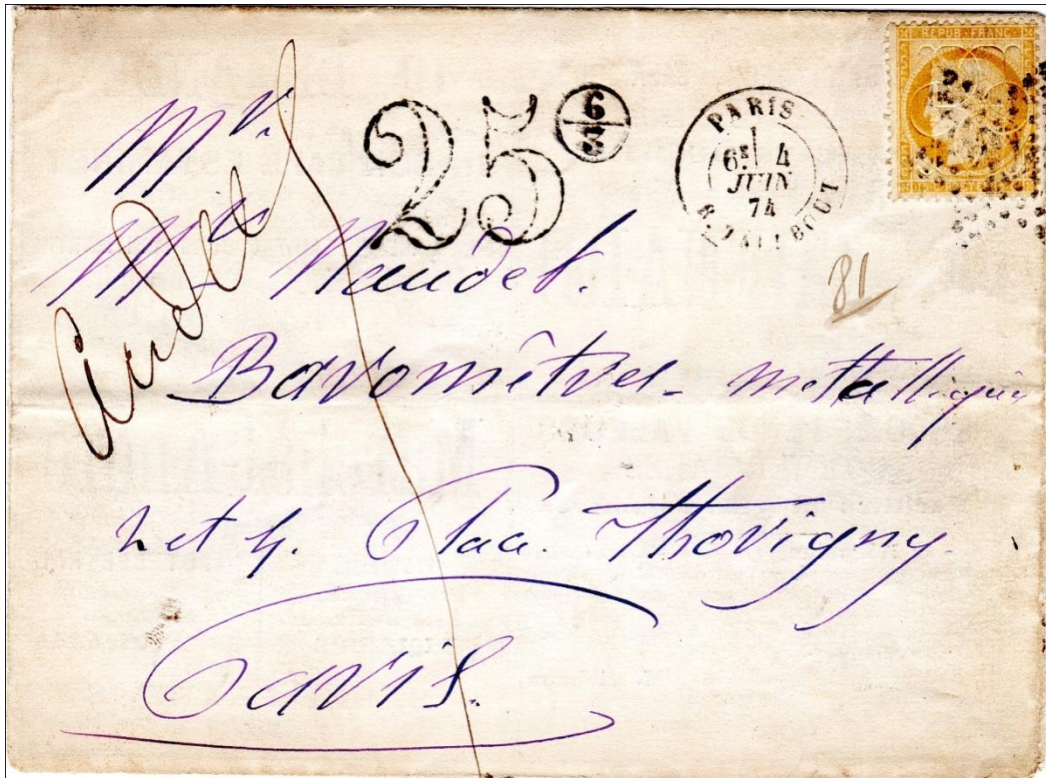 REPUB · FRANC
25c
6
3
PARIS
6E 4
JUIN
74
R. TAITBOUT
Mr.
Naudet.
81
Baromètres métalliques
2 et 4. Place Thorigny.
Paris.